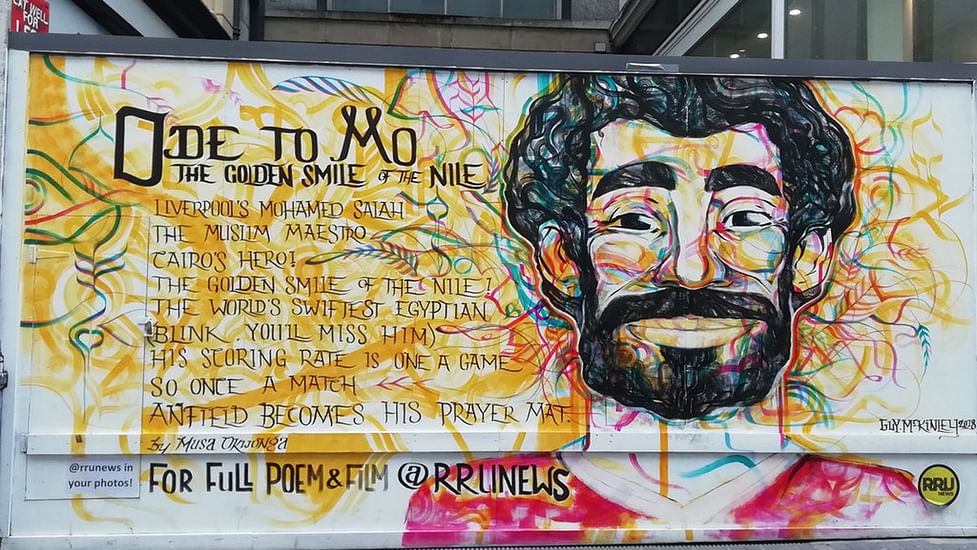 EAT WELL
FOR
LESS
ODE TO MO
THE GOLDEN SMILE OF THE NILE
LIVERPOOL'S MOHAMED SALAH
THE MUSLIM MAESTRO
CAIRO'S HERO!
THE GOLDEN SMILE OF THE NILE!
THE WORLD'S SWIFTEST EGYPTIAN
(BLINK. YOU'LL MISS HIM)
HIS SCORING RATE IS ONE A GAME
SO ONCE A MATCH
ANFIELD BECOMES HIS PRAYER MAT.
by MUSA OKWONGA
GUY MCKINLEY 2018
@rrunews in
your photos!
FOR FULL POEM & FILM @RRUNEWS
RRU
NEWS